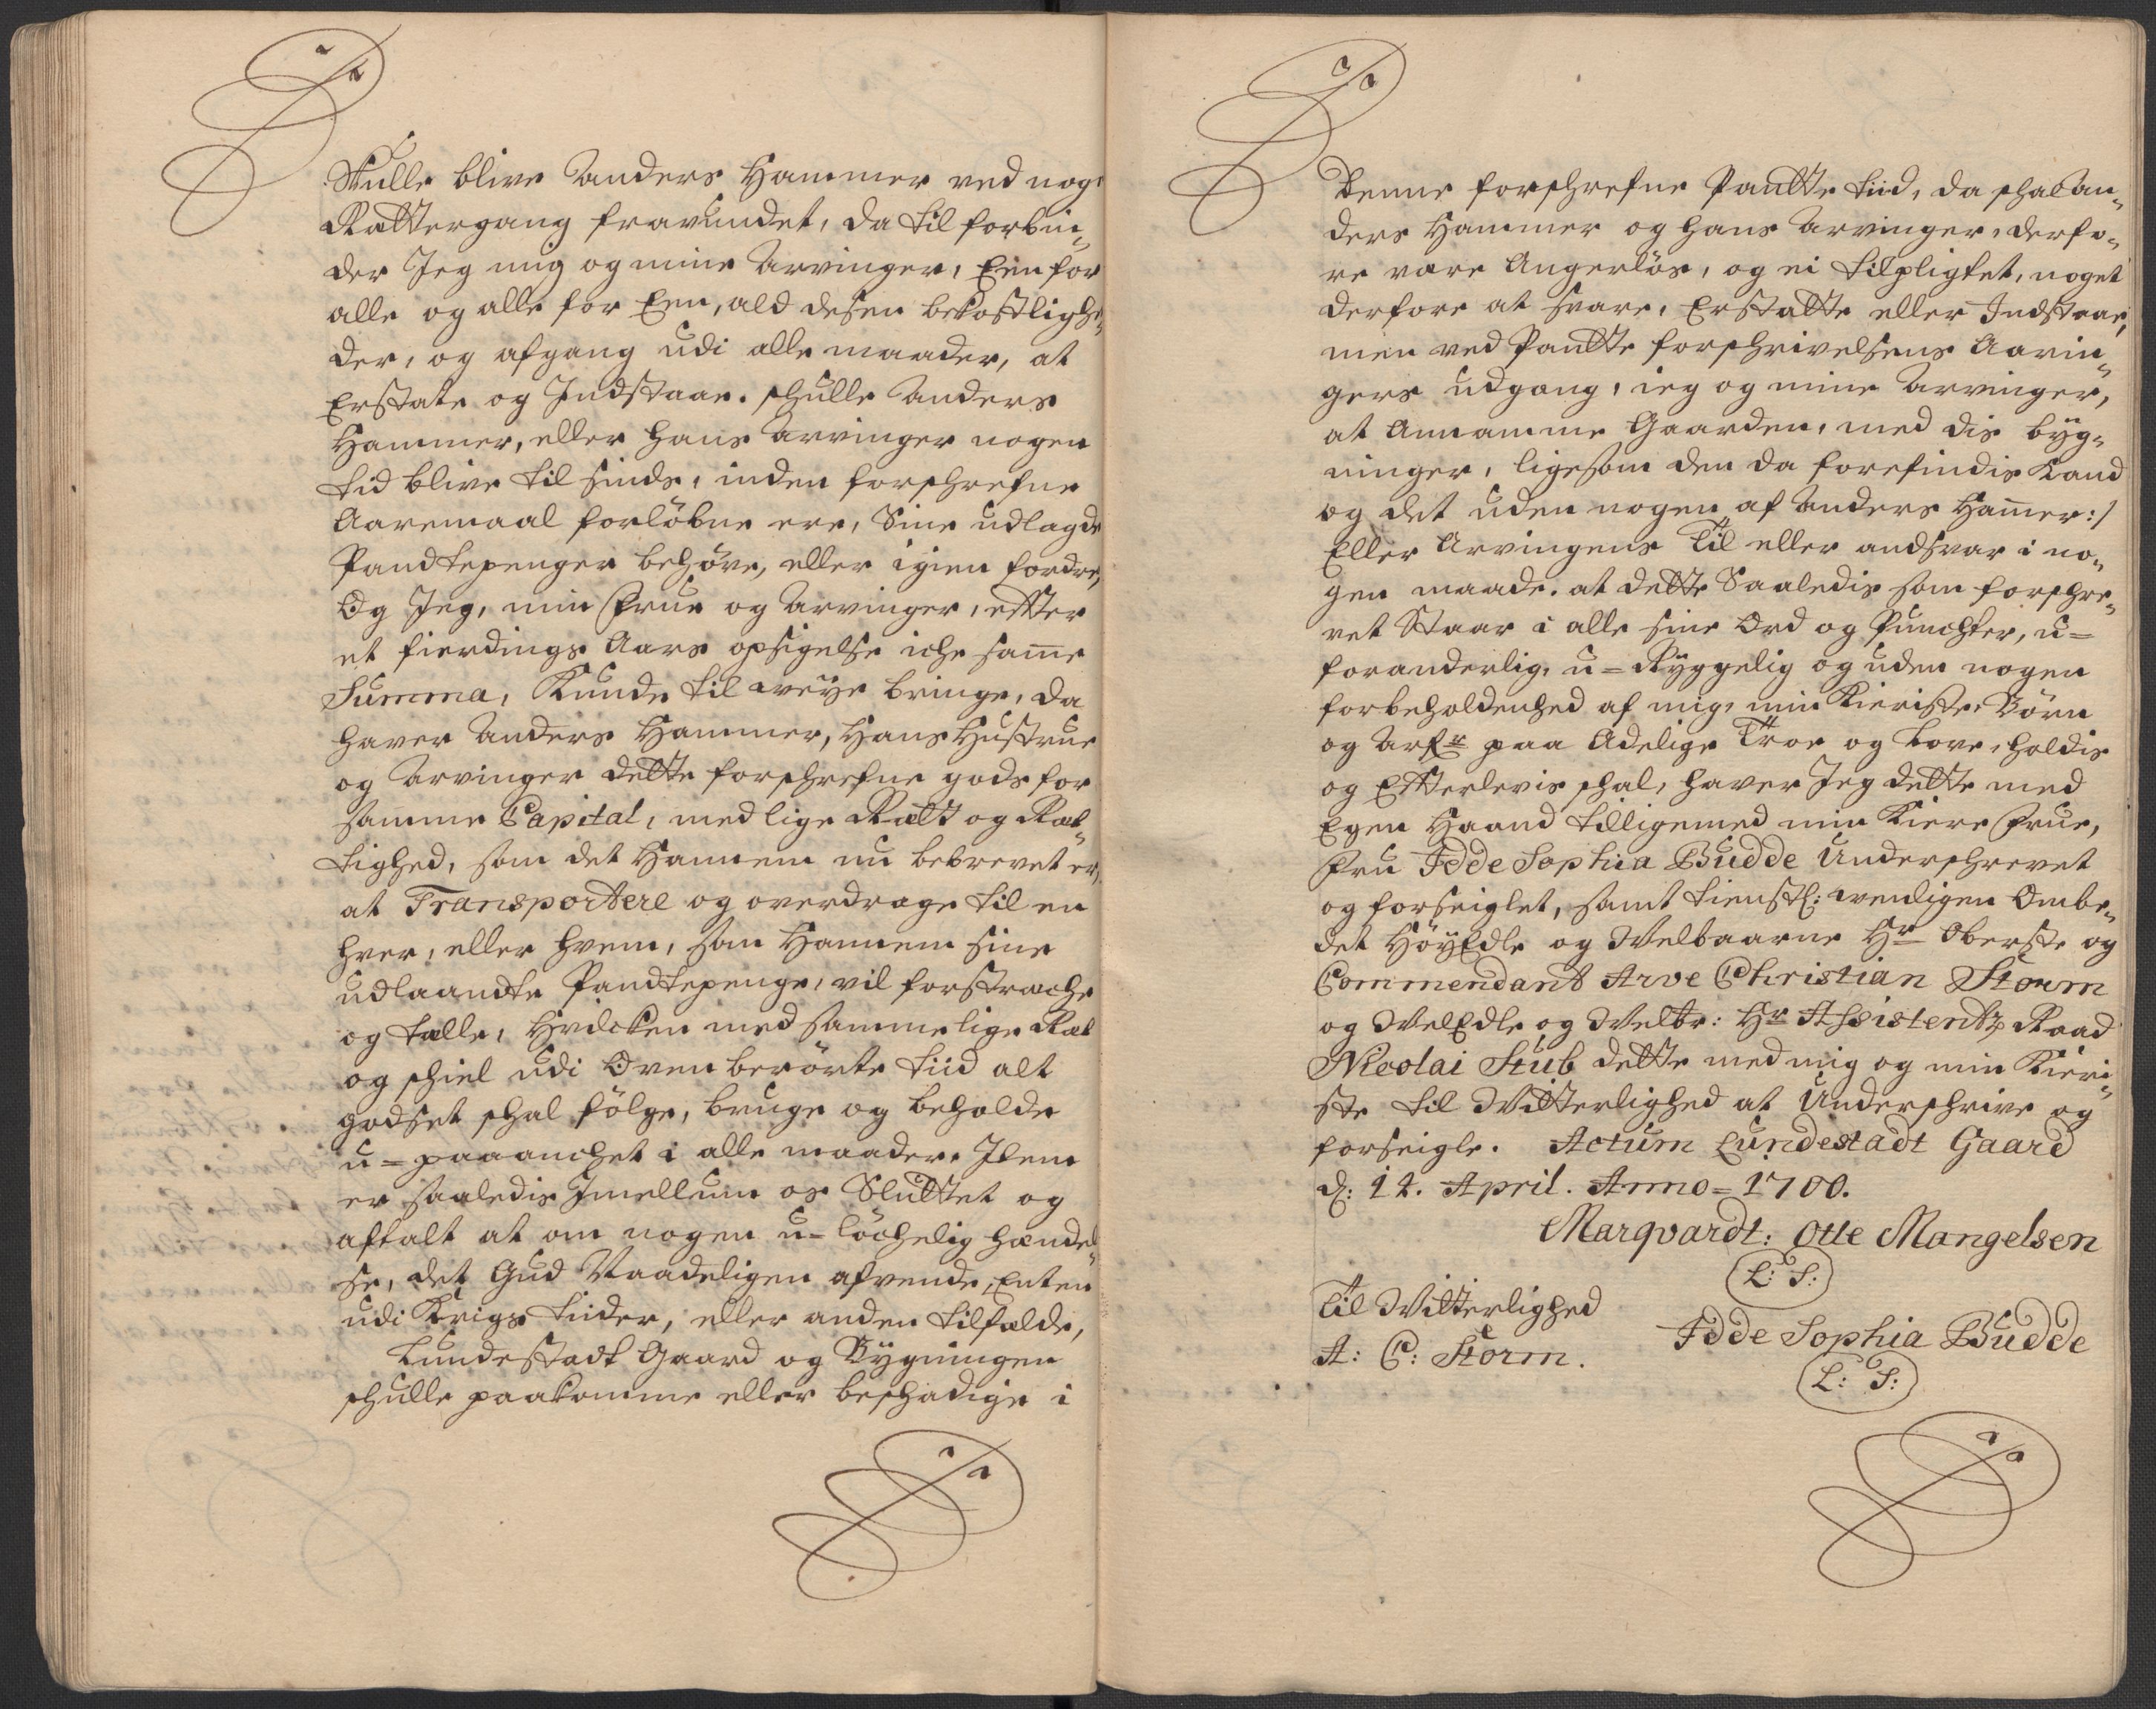 Skulle blive Anders Hammer ved nog:
Rættergang fravundet, da til forbin-
der Jeg mig og mine Arvinger, Een for
alle og alle for Een, ald desen bekostlighe-
der, og afgang udi alle maader, at
Erstate og Indstaae. skulle Anders
Hammer, eller hans Arvinger nogen
tid blive til sinds, inden forschrefne
Aaremaal forløbne ere, Sine udlagde
Pandtepenger behøve, eller igien fordre,
Og Jeg, min Frue og Arvinger, effter
et fierdings Aars opsigelse iche same
Summa, Kunde til weye bringe, da
haver Anders Hammer, Hans Hustrue
og Arvinger dette forschrefne gods for
samme Capital, med lige Rætt og Ræt-
tighed, som det Hannem nu bebrevet er,
at Transportere og overdrage til en
hver, eller hvem, som Hannem sine
udlaandte Pandtepenge, vil forstræche
og tælle, Hvilcken med samme lige Ræt
og schiel udi Oven berørte tiid alt
godset schal følge, bruge og beholde
u=paaanchet i alle maader. Item
er saaledis Imellum os Sluttet og
aftalt at om nogen u=løchelig hændel-
se, det Gud Naadeligen afvende, Enten
udi Krigs tiider, eller anden tilfælde,
Lundestadt Gaard og Bygningen
schulle paakomme eller beschadige i
Denne forschrefne Pantte tiid, da schal An-
ders Hammer og hans Arvinger, derfo-
re være Angerløs, og ei tilpligtet, noget
derfore at svare, Erstatte eller Indstaae,
men ved Pantte forschrivelsens Aarin-
gers udgang, ieg og mine Arvinger,
at Annamme Gaarden, med dis byg-
ninger, ligesom den da forefindis Kand
og det uden nogen af Anders Hamer:/
Eller Arvingens Til eller andsvar i no-
gen maade. at dette Saaledis som forschre-
vet Staar i alle sine Ord og Punchter, u=
foranderlig, u=Ryggelig og uden nogen
forbeholdenhed af mig, min Kieriste, Børn
og Arfr paa Adelige Troe og Love, holdis
og Effterlevis schal, haver Jeg dette med
Egen Haand tilligemed min Kiere Frue,
Fru Idde Sophia Budde Underschrevet
og forseiglet, samt tienstl: wenligen Ombe-
det HøyEdle og Velbaarne Hr Oberste og
Commendant Arve Christian Storm
og VelEdle og Velbr: Hr Assistentz Raad
Nicolai Stub dette med mig og min Kieri-
ste til Vitterlighed at Underschrive og
forseigle. Actum Lundestadt Gaard
d: 12. April. Anno=1700.
Marqvardt: Otte Mangelsen
L: S:
Til Vitterlighed
Idde Sophia Budde
A: C: Storm.
L: S: